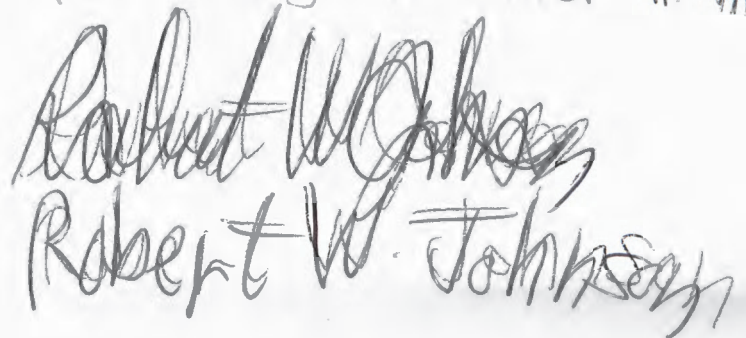 Robert W Johnson
Robert W. Johnson